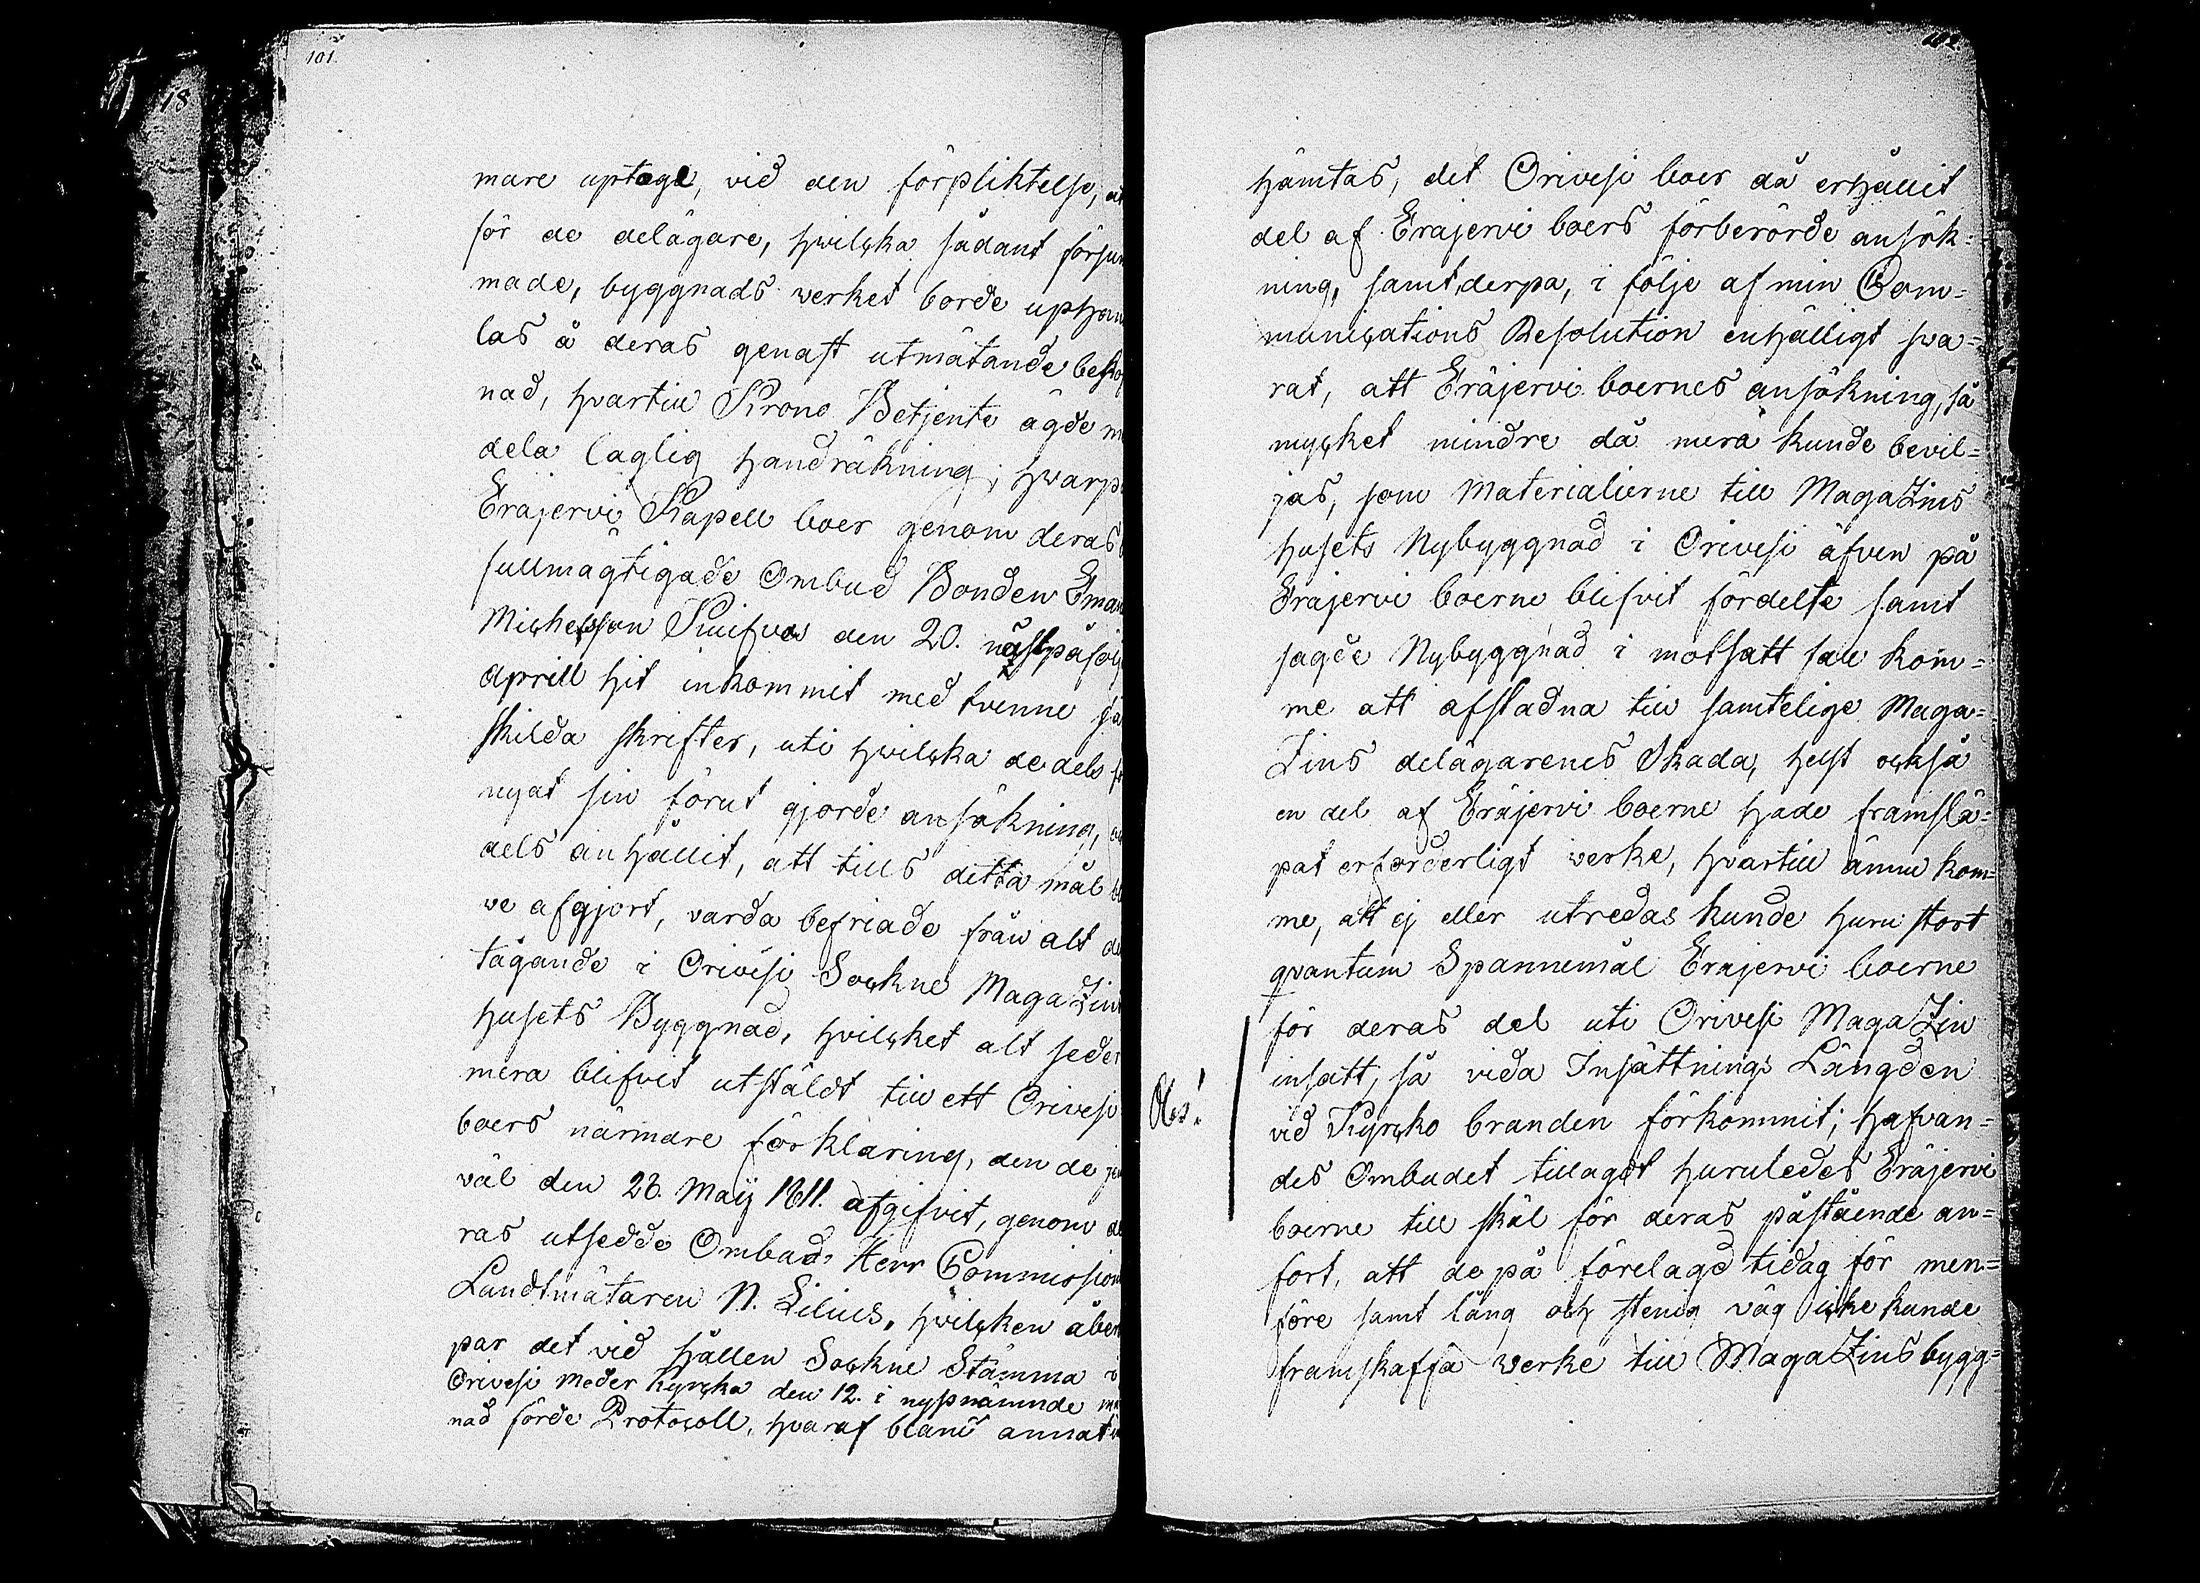 101.
18
mare uptage, vid den förpliktelse, at
för de delägare, hwilcka sådant försum
made, byggnads werket borde uphan
las å deras genast utmätande bekost
nad, hvartill Krono Betjente ägde m
dela laglig handräkning; hwarp
Eräjervi Kapell boer genom deras
fullmägtigade Ombud Bonden Eman
Michelsson den 20. nästpåföl
Aprill hit inkommit med tvenne sä
skilda skrifter, uti hwilcka de dels f
nyat sin förut gjorde ansökning,
dels anhållit, att tills detta mål bl
ve afgjort, varda befriade från alt de
tagande i Orivesi Sockne MagaZins
husets Byggnad, hvilcket alt seder
mera blifvit utstäldt till ett Orivesi
boers närmare förklaring, den de jem
väl den 28. Maij 1811. afgifvit, genom de
ras utsedde Ombud, Herr Commissions
Landtmätaren N. Lilius, hvilcken åbero
par det vid hållen Sockne Stämma i
Orivesi Moder Kyrcka den 12. i nyssnämnde må
nad förde Protocoll, hvaraf bland annat in
102.
hämtas, det Orivesi boer då erhållit
del af Eräjervi boers förberörde ansök=
ning, samt derpa, i följe af min Com=
munications Resolution enhälligt swa=
rat, att Eräjervi boernes ansökning, så
mycket mindre då mera kunde bevil=
jas, som Materialierne till MagaZins
husets Nybyggnad i Orivesi äfven på
Eräjervi boerne blifvit fördelte samt
sagde Nybyggnad i motsatt fall kom=
me att afstadna till samtelige Maga=
Zins delägarenes Skada, helst också
en del af Eräjervi boerne hade framslä=
pat erforderligt verke, hvartill ännu kom=
me, att ej eller utredas kunde huru stort
qvantum Spannemål Eräjervi boerne
för deras del uti Orivesi MagaZin
insatt, så vida Insättnings Längden
vid Kyrcko branden förkommit; hafvan=
des Ombudet tillagdt huruledes Eräjervi
boerne till skäl för deras påstående an=
fört, att de på förelagd tidag för men=
före samt lång och stenig väg icke kunde
framskaffa verke till MagaZins bygg=
Obs!